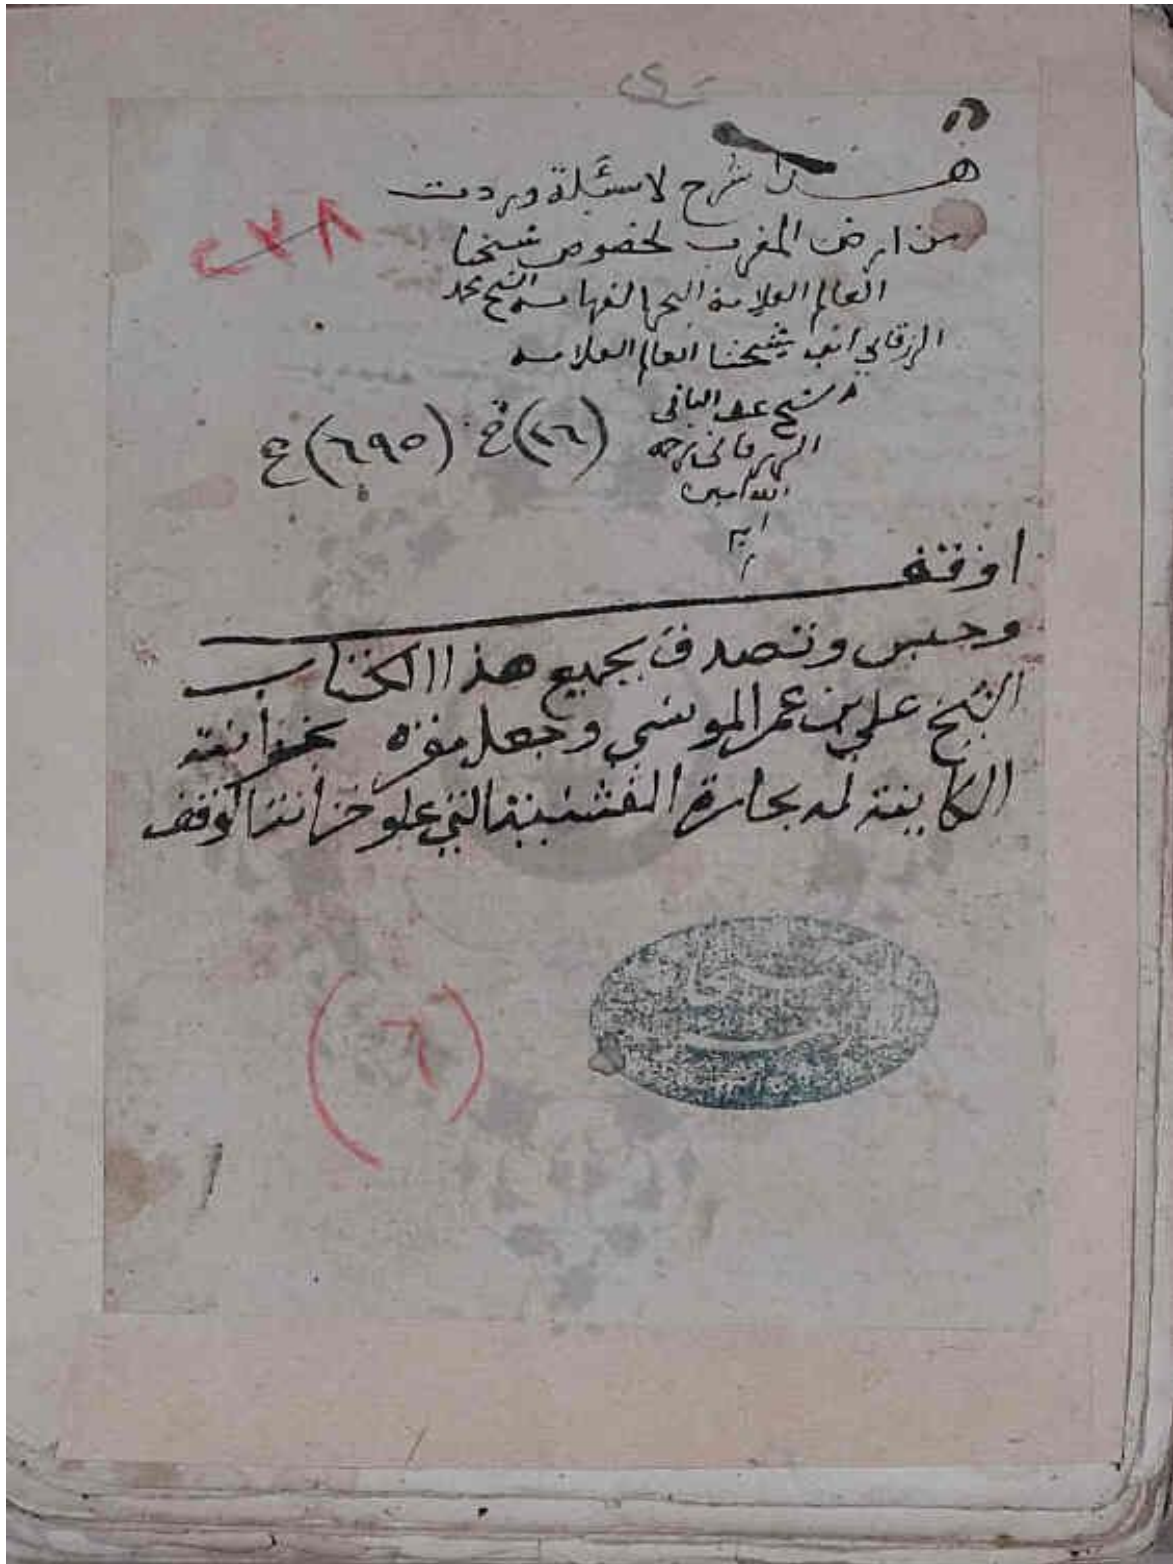 هذا شرح لاسئلة وردت
من ارض المغرب لخصوص شيخنا
العالم العلامة البحر الفهامه الشيخ محمد
الزرقاني ابن شيخنا العالم العلامه
الشيخ عبد الباقي
الزرقاني رحمه
الله امين
(٢٦) خ (٦٩٥) ع
٢٧٨
اوقف
وحبس وتصدق بجميع هذا الكتاب
الشيخ علي بن عمر المونسي وجعل مقره بخزانته
الكاينة له بحارة الفشنية التي علو خزانة
(٦)